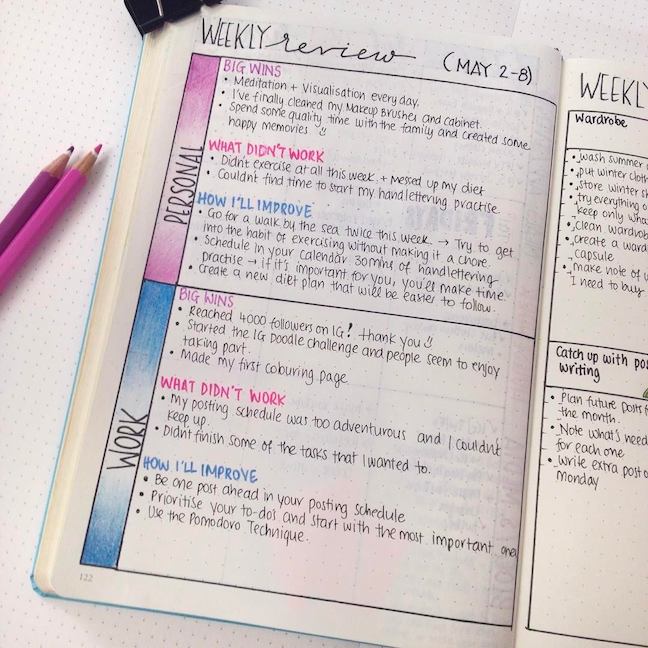 WEEKLY review (MAY 2-8)
PERSONAL
BIG WINS
• Meditation + Visualisation every day.
• I've finally cleaned my Makeup Brushes and Cabinet.
• Spend some quality time with the family and created some
happy memories
WHAT DIDN'T WORK
• Didn't exercise at all this week + Messed up my diet
• Couldn't find time to start my handlettering practise
HOW I'LL IMPROVE
• Go for a walk by the sea twice this week → Try to get
into the habit of exercising without making it a chore.
• Schedule in your calendar 30mns of handlettering
practise → if it's important for you, you'll make time
• Create a new diet plan that will be easier to follow.
WORK
BIG WINS
• Reached 4000 followers on IG! Thank you
• Started the IG Doodle challenge and people seem to enjoy
taking part.
• Made my first colouring page
WHAT DIDN'T WORK
• My posting schedule was too adventurous and I couldn't
keep up.
• Didn't finish some of the tasks that I wanted to.
HOW I'LL IMPROVE
• Be one post ahead in your posting schedule
• Prioritise your to-do's and start with the most important one
• Use the Pomodovo Technique.
122
WEEKLY
Wardrobe
• wash summer
• put winter
• store winter
• try everything
keep only
• clean
• create a
capsule
• make note of
I need to buy
Catch up with
writing
• Plan future posts
the month.
• Note what's need
for each one
• write extra post
monday